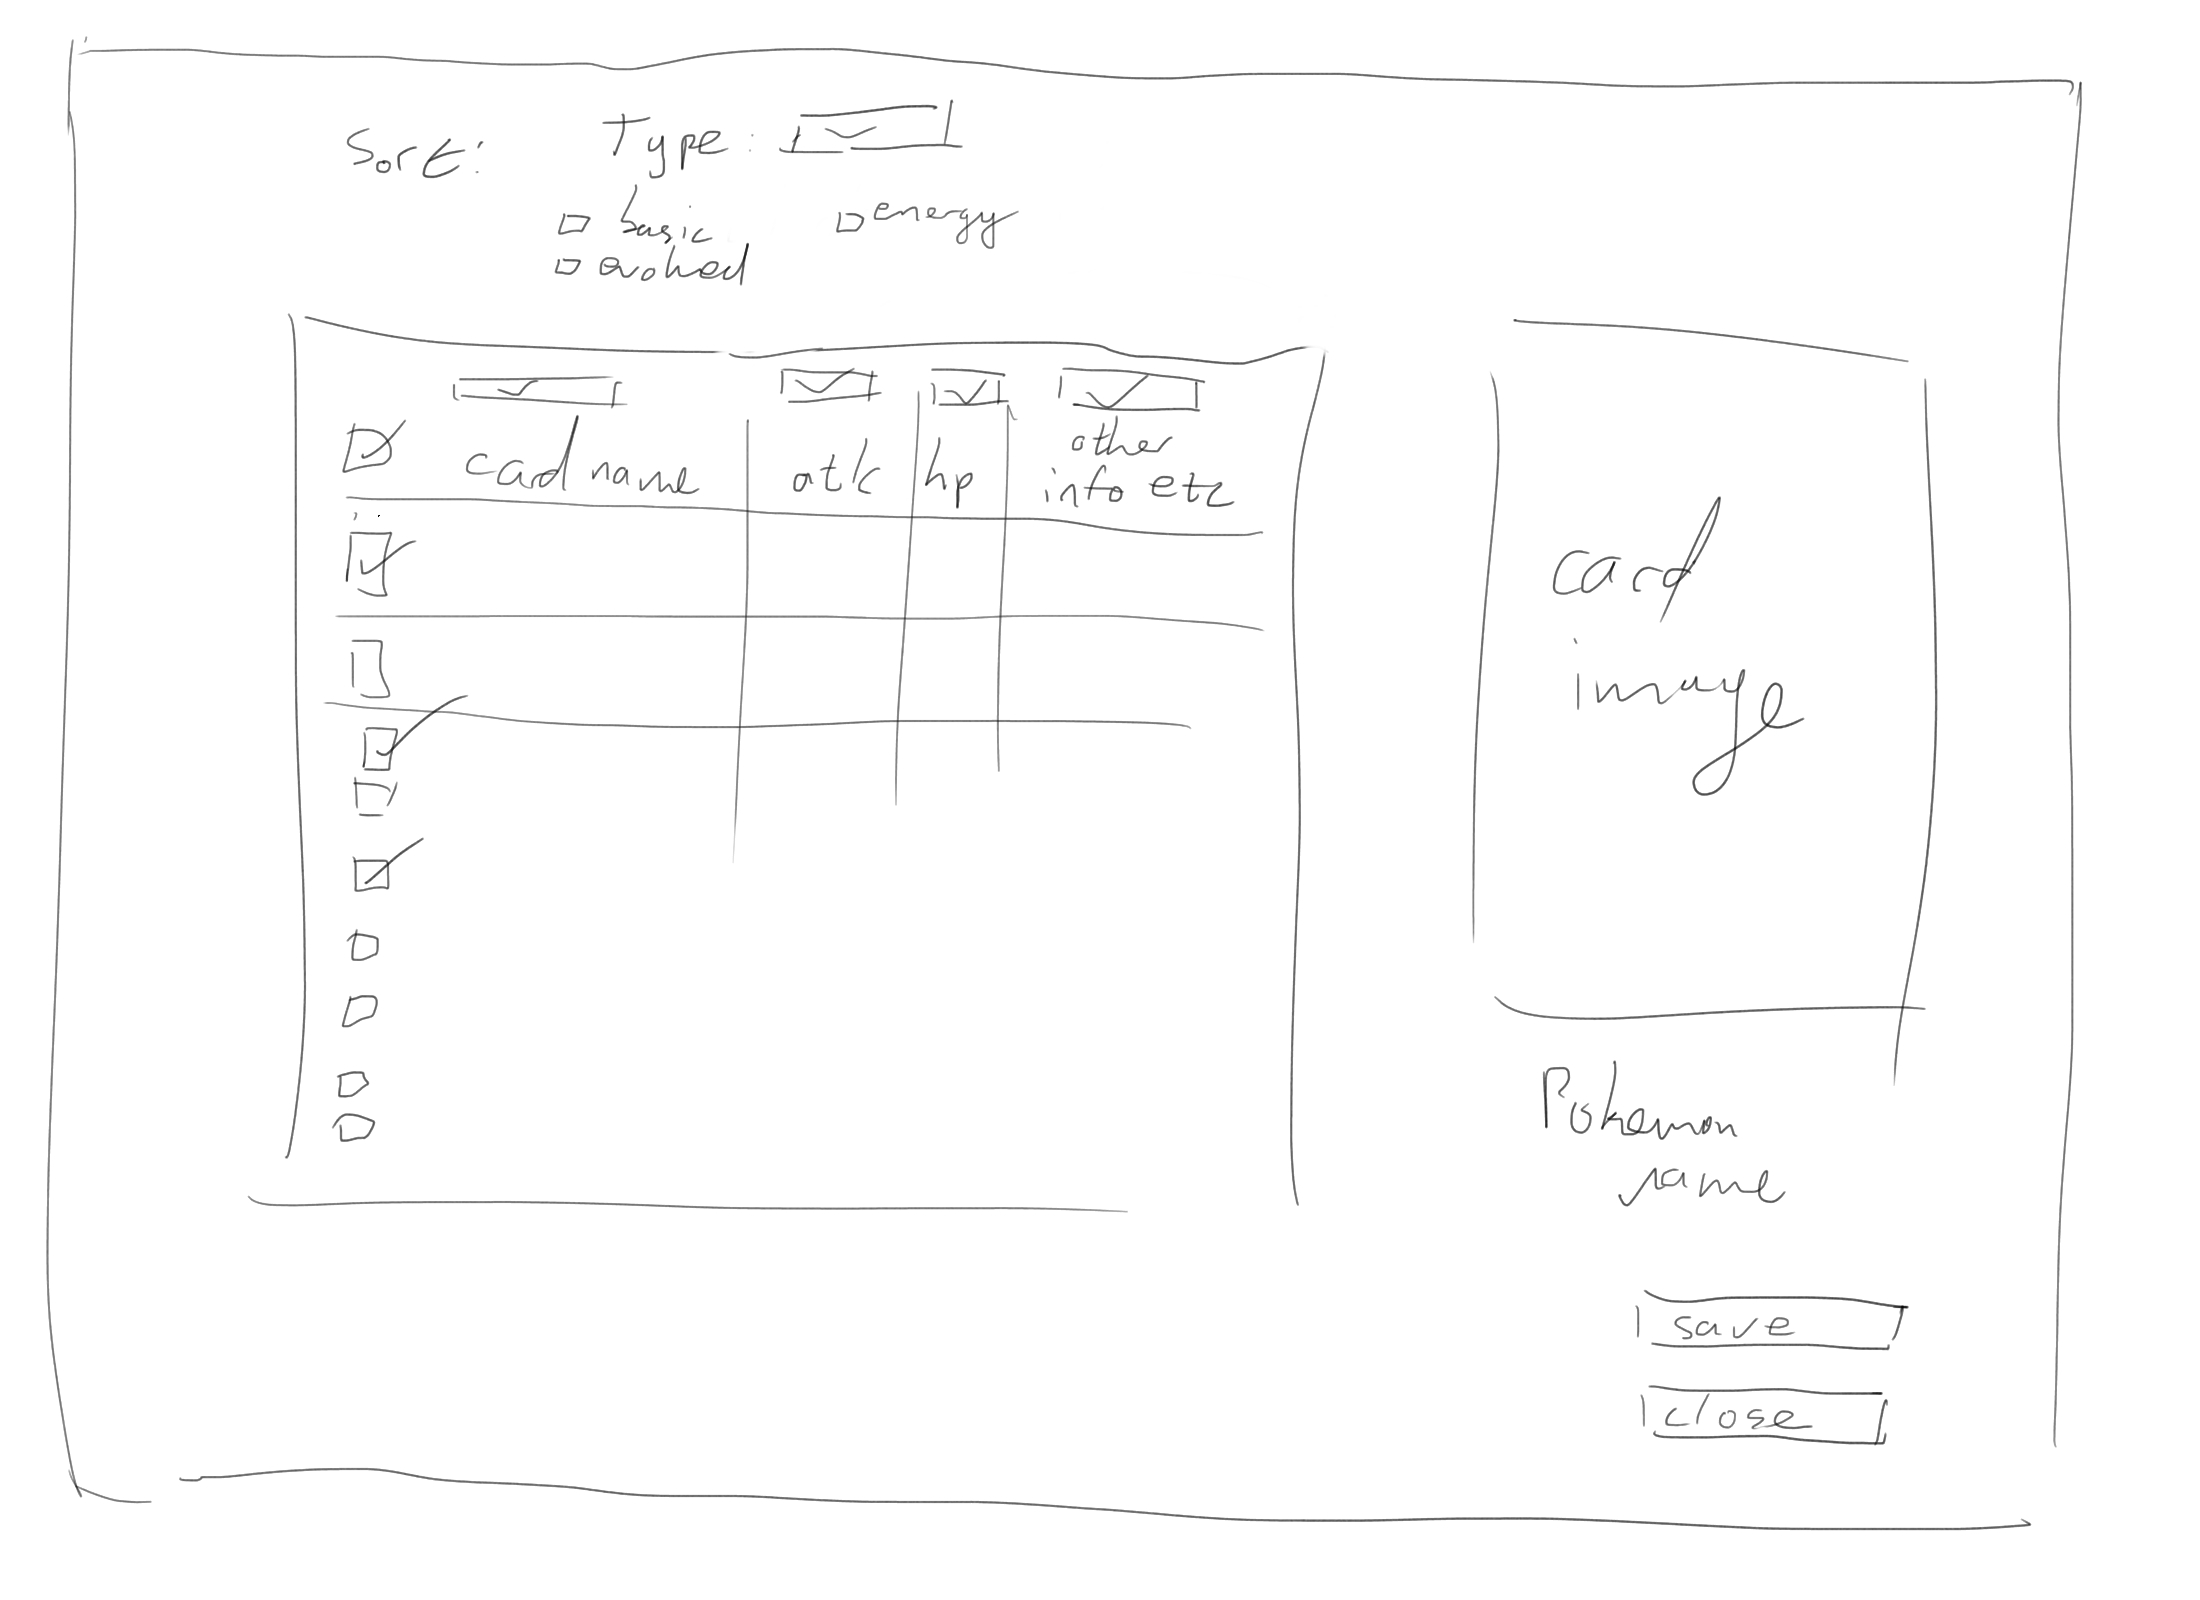 Sort:
Type:
basic
energy
evolved
card name
atk
hp
other
info etc
card
image
Pokemon
name
save
close